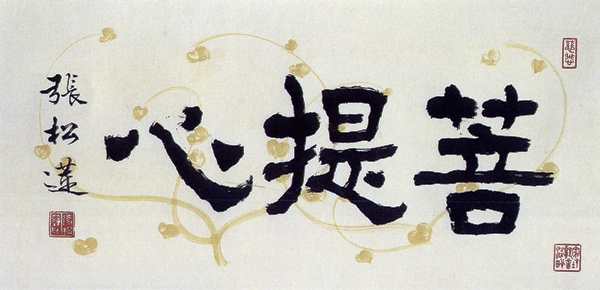 菩提心
張松蓮